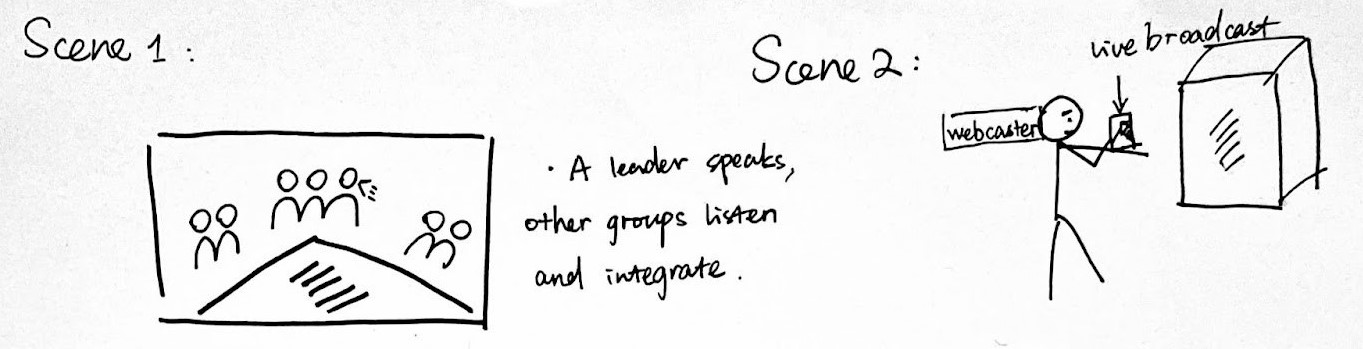 Scene 1:
· A leader speaks,
other groups listen
and integrate.
Scene 2:
live broadcast
webcaster